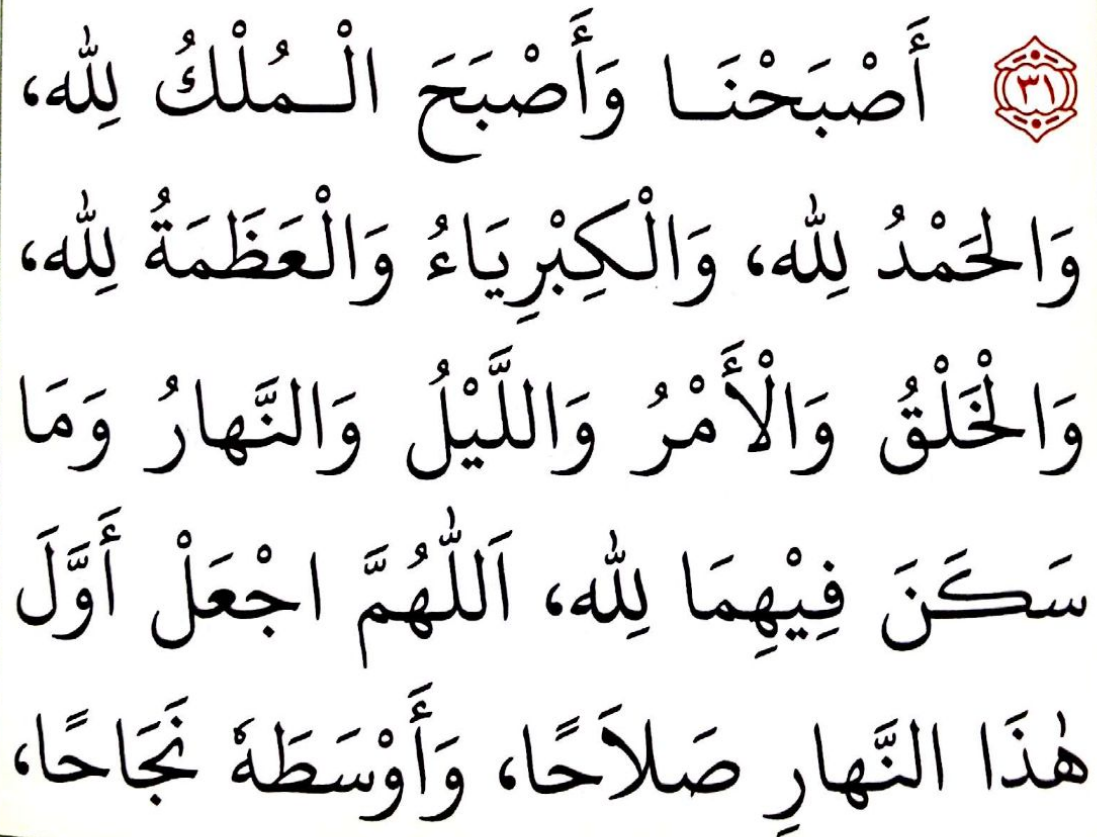 ٣١ أَصْبَحْنَـا وَأَصْبَحَ الْـمُلْكُ لِلّٰه،
وَالحَمْدُ لِلّٰه، وَالْكِبْرِيَاءُ وَالْعَظَمَةُ لِلّٰه،
وَالْخَلْقُ وَالْأَمْرُ وَاللَّيْلُ وَالنَّهارُ وَمَا
سَكَنَ فِيْهِمَا لِلّٰه، اَللّٰهُمَّ اجْعَلْ أَوَّلَ
هٰذَا النَّهارِ صَلَاحًا، وَأَوْسَطَهٗ نَجَاحًا،